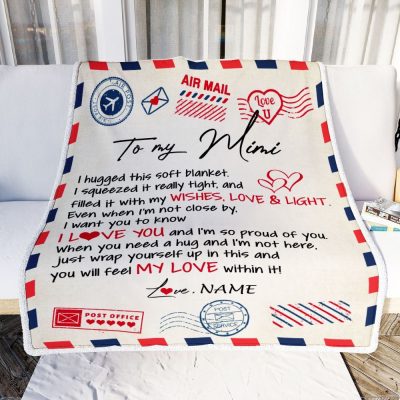 AIR POST
AIR MAIL
Love
U
To my Mimi
I hugged this soft blanket.
I squeezed it really tight, and
filled it with my WISHES, LOVE & LIGHT.
Even when I'm not close by.
I want you to know
I L❤VE YOU and I'm so proud of you.
When you need a hug and I'm not here,
just wrap yourself up in this and
you will feel MY LOVE within it!
Love, NAME
POST OFFICE
POST
SERVICE